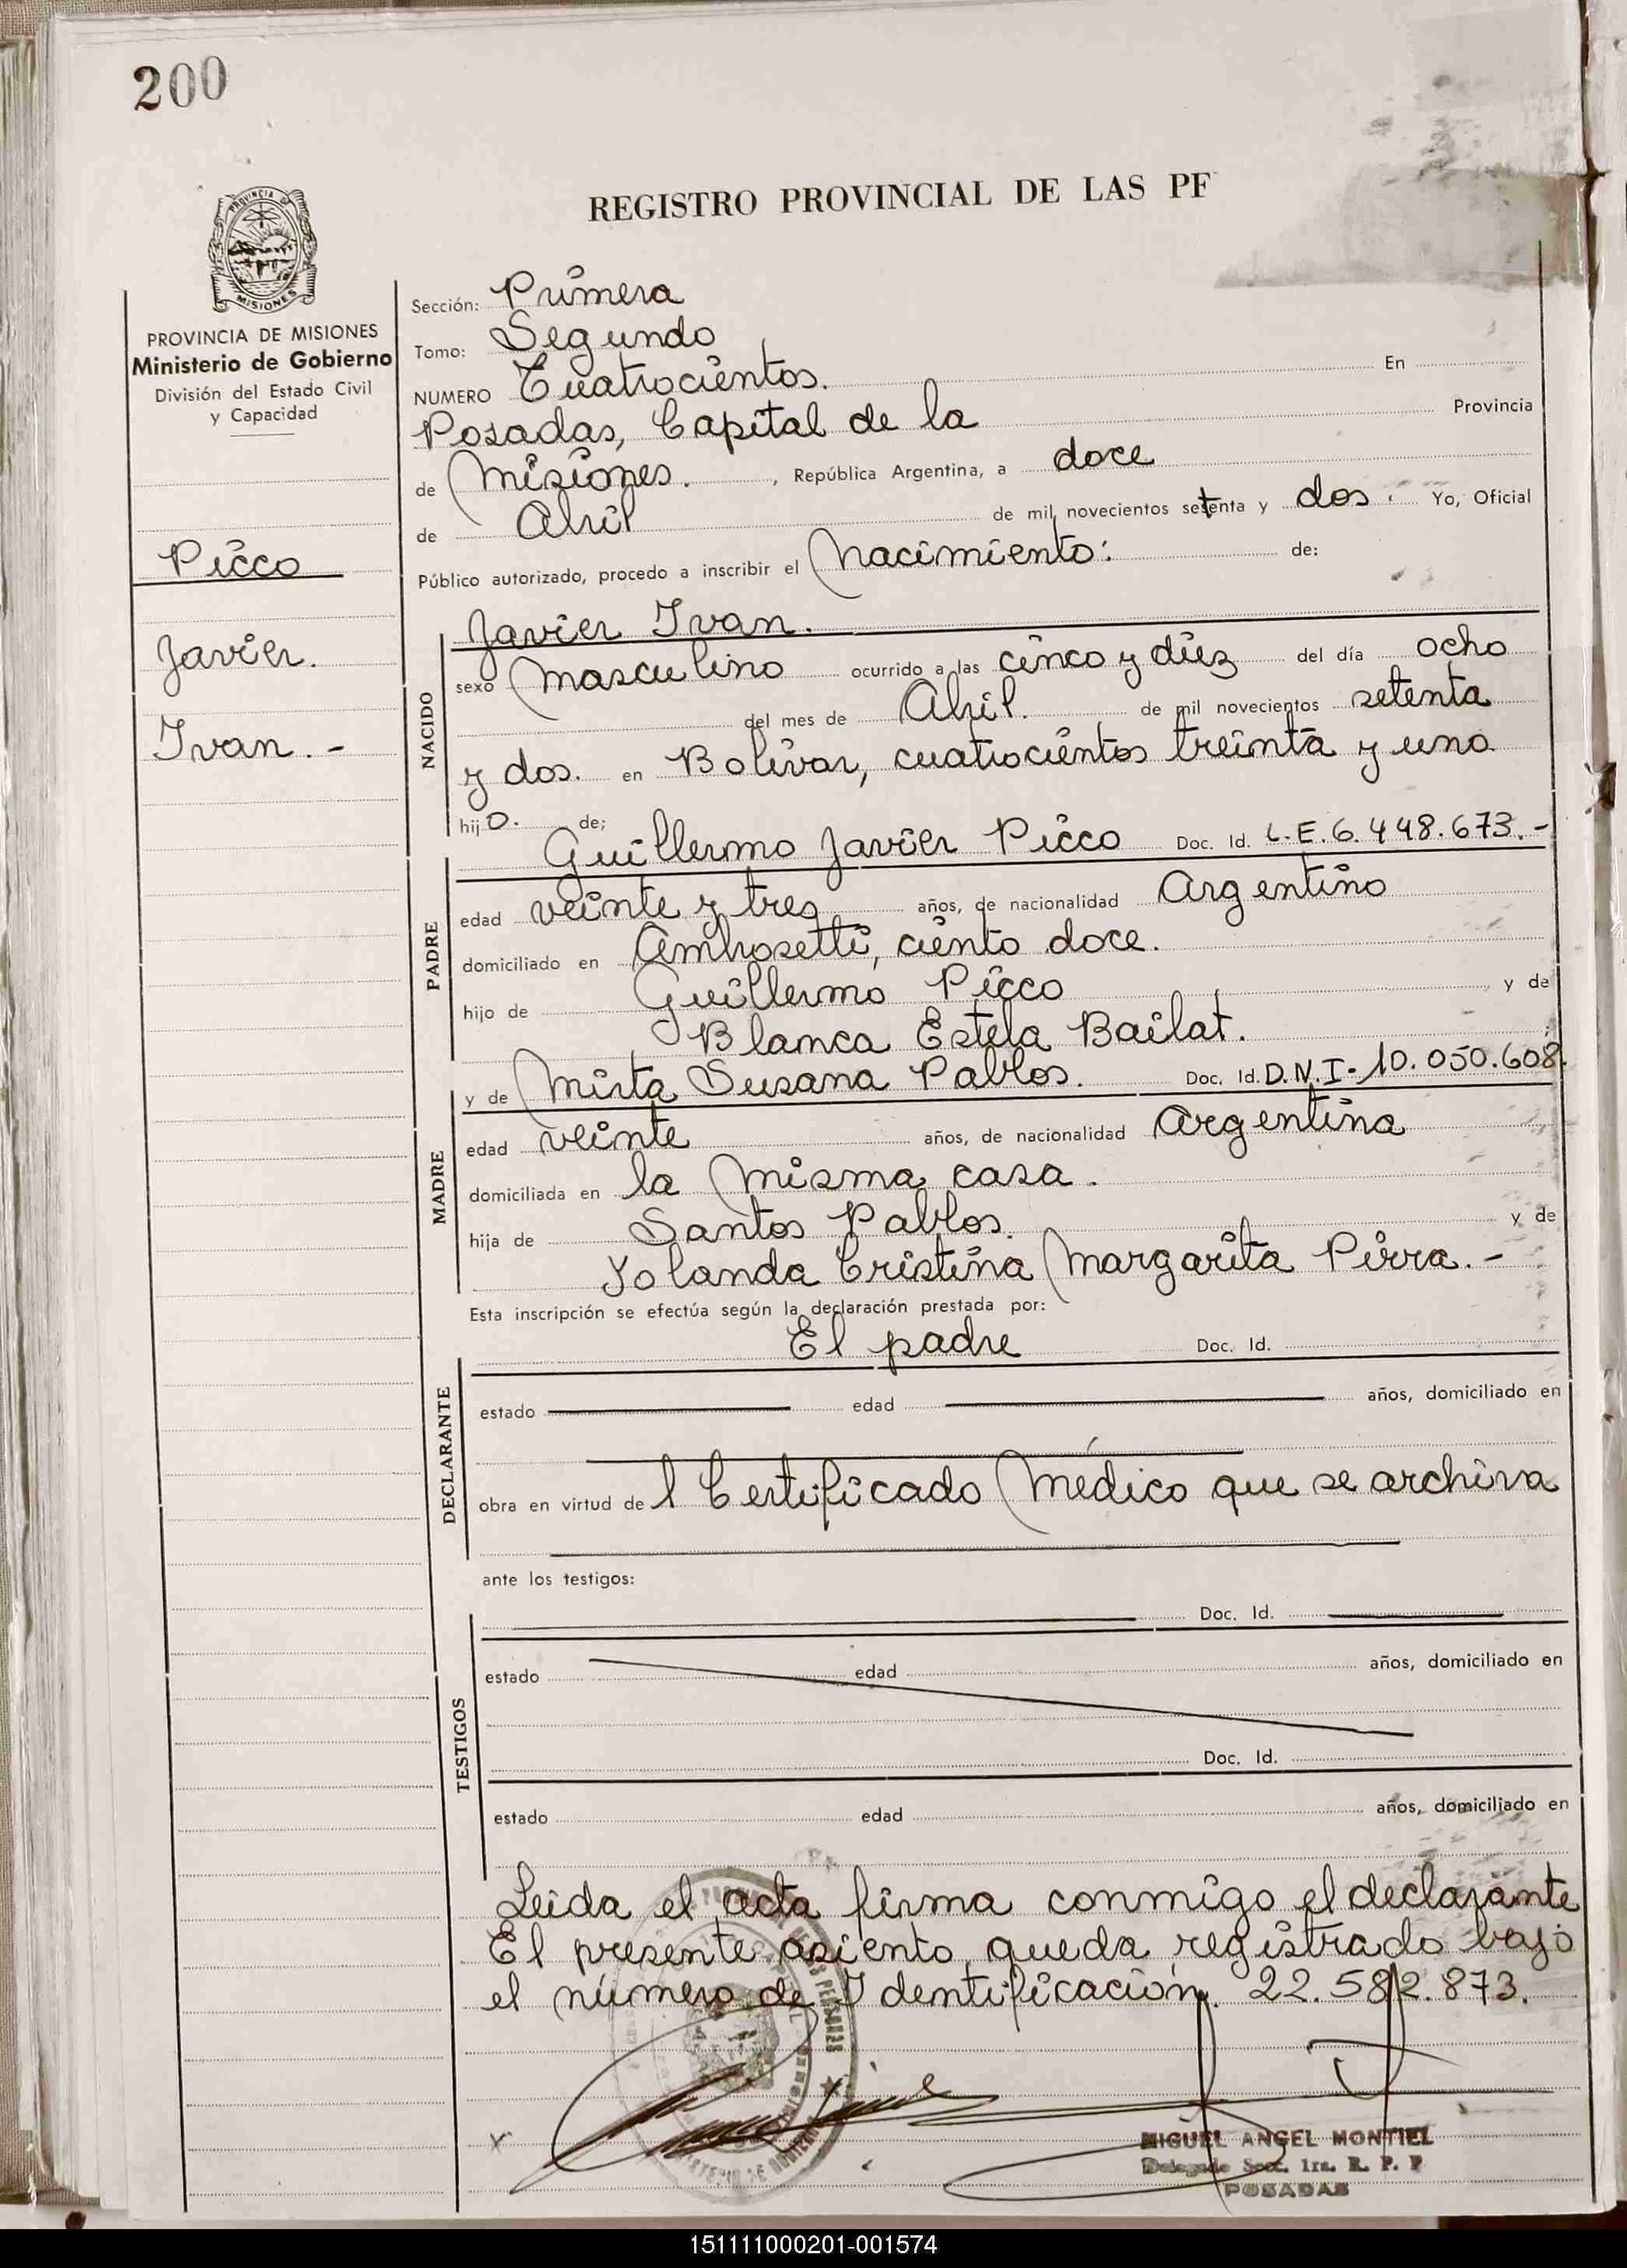 200
PROVINCIA DE
MISIONES
REGISTRO PROVINCIAL DE LAS PE
PROVINCIA DE MISIONES
Ministerio de Gobierno
División del Estado Civil
y Capacidad
Picco
Javier.
Ivan.-
Sección: Primera
Tomo: Segundo
NUMERO Cuatrocientos. En
Posadas, Capital de la Provincia
de Misiones. , República Argentina, a doce
de Abril de mil novecientos setenta y dos. Yo, Oficial
Público autorizado, procedo a inscribir el Nacimiento: de:
NACIDO
Javier Ivan.
sexo Masculino ocurrido a las cinco y diez del día ocho
del mes de Abril. de mil novecientos setenta
y dos. en Bolivar, cuatrocientos treinta y uno
hijo. de;
PADRE
Guillermo Javier Picco Doc. Id. L.E.6.448.673.-
edad veinte y tres años, de nacionalidad Argentino
domiciliado en Ambrosetti, ciento doce.
hijo de Guillermo Picco y de
Blanca Estela Bailat.
MADRE
y de Mirta Susana Pablos. Doc. Id. D.N.I-10.050.608.
edad veinte años, de nacionalidad Argentina
domiciliada en la misma casa.
hija de Santos Pablos. y de
Yolanda Cristina Margarita Pirra.-
Esta inscripción se efectúa según la declaración prestada por:
DECLARANTE
El padre Doc. Id.
estado edad años, domiciliado en
obra en virtud del Certificado Médico que se archiva
ante los testigos:
TESTIGOS
Doc. Id.
estado edad años, domiciliado en
Doc. Id.
estado edad años, domiciliado en
Leida el acta firma conmigo el declarante
El presente asiento queda registrado bajo
el número de Identificación. 22.582.873.
MIGUEL ANGEL MONTIEL
Delegado Secc. 1ra. R. P. P
POSADAS
151111000201-001574